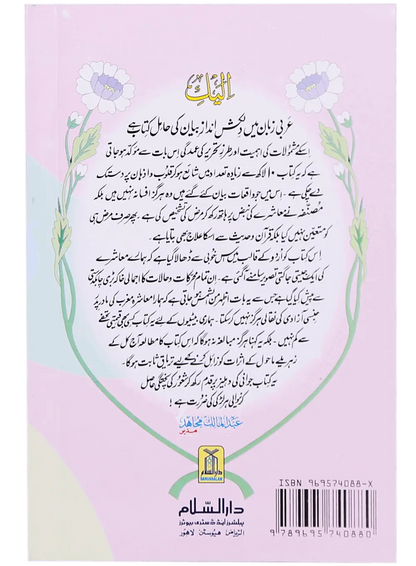 الیکِ
عربی زبان میں دلکش اندازِ بیان کی حامل کتاب ہے
اسکے مشمولات کی اہمیت اور طرزِ تحریر کی عمدگی اِس بات سے مؤکد ہو جاتی
ہے کہ یہ کتاب ۱۰ لاکھ سے زیادہ تعداد میں شائع ہو کر قلوب و اذہان پر دستک
دے چکی ہے۔ اِس میں جو واقعات بیان کئے گئے ہیں وہ ہرگز افسانہ نہیں ہیں بلکہ
مصنفہ نے معاشرے کی نبض پر ہاتھ رکھ کر مرض کی تشخیص کی ہے۔ پھر صرف مرض ہی
کو متعین نہیں کیا بلکہ قرآن و حدیث سے اسکا علاج بھی بتایا ہے۔
اِس کتاب کو اردو کے قالب میں اِس خوبی سے ڈھالا گیا ہے کہ ہمارے معاشرے
کی ایک جیتی جاگتی تصویر سامنے آ گئی ہے۔ اِن تمام محرکات و حالات کا اجمالی خاکہ بڑی چابکدستی
سے پیش کیا گیا ہے جس سے یہ بات اظہر من الشمس ہو جاتی ہے کہ ہمارا معاشرہ مغرب کی مادر پدر
جنسی آزادی کی نقالی ہرگز نہیں کر سکتا۔ ہماری بیٹیوں کے لیے یہ کتاب کسی بھی قیمتی تحفے سے
کم نہیں۔ بلکہ یہ کہنا ہرگز مبالغہ نہ ہوگا کہ اس کتاب کا مطالعہ آج کل کے
زہریلے ماحول کے اثرات کو زائل کرنے کیلیے تریاق ثابت ہوگا۔
یہ کتاب جوانی کی دہلیز پر قدم رکھ کر شعور کی پختگی حاصل
کرنیوالی ہر لڑکی کی ضرورت ہے!
عبدالمالک مجاہد
مدیر
دارالسلام
DARUSSALAM
دارالسلام
پبلشرز اینڈ ڈسٹری بیوٹرز
الریاض ہیوسٹن لاہور
ISBN 969574088-X
9 789695 740880